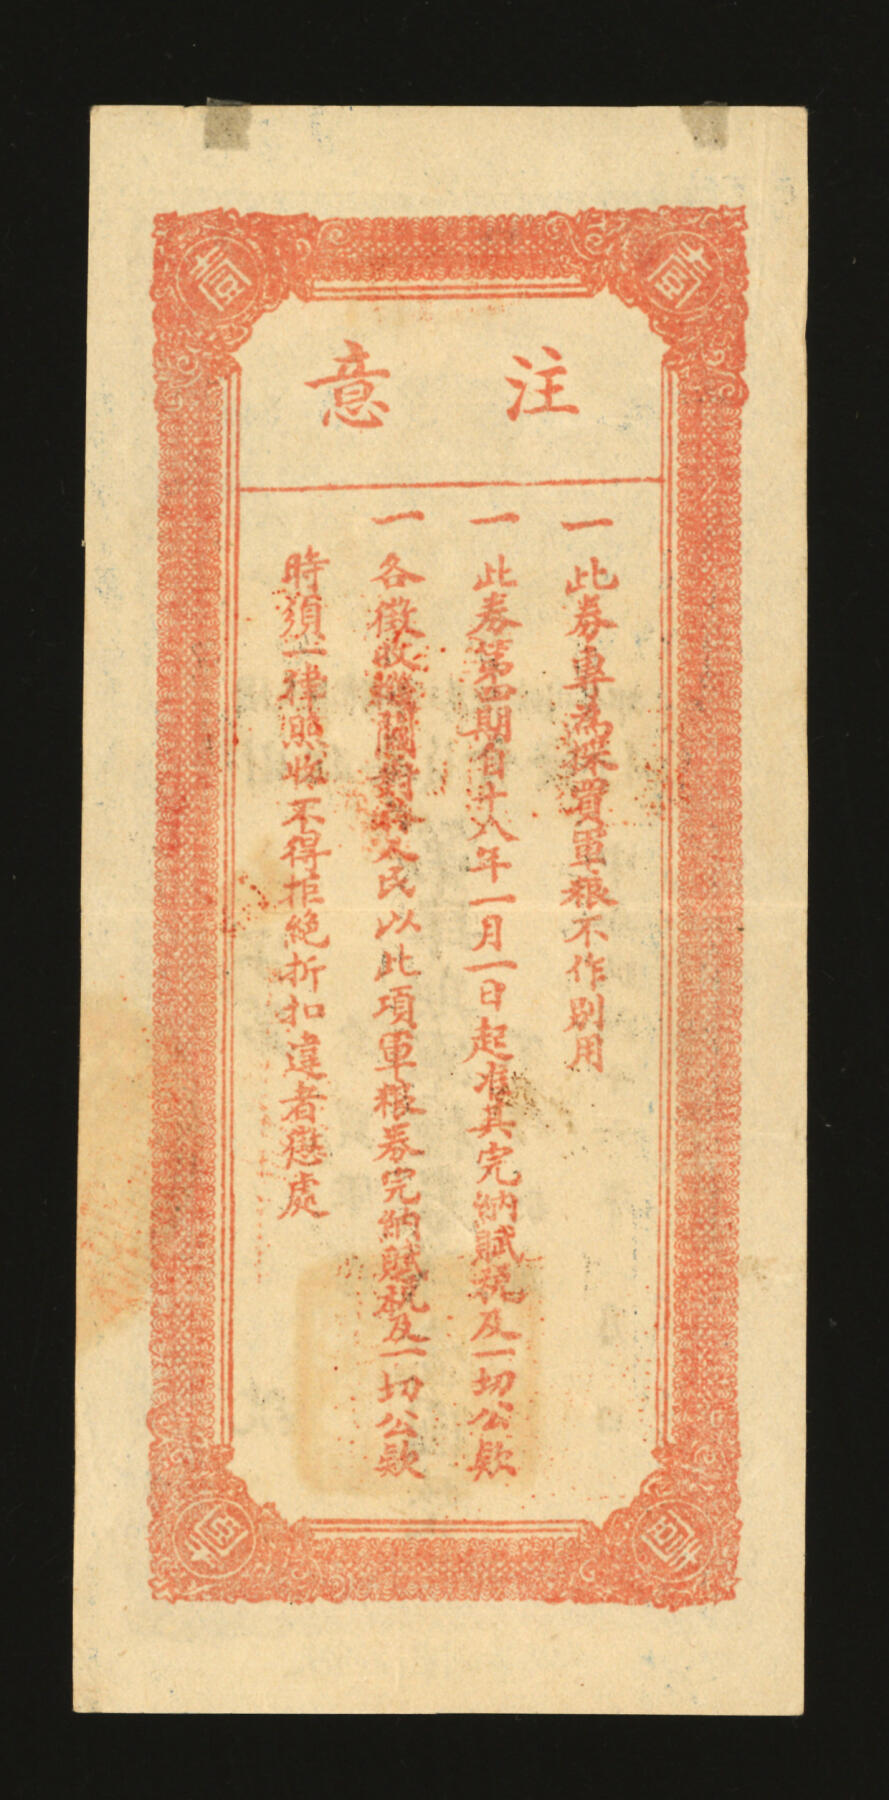 壹
壹
注意
一 此券專為採買軍粮不作別用
一 此券第四期自十八年一月一日起准其完納賦税及一切公款
一 各徵收機關對於人民以此項軍粮券完納賦税及一切公款
時須一律照收不得拒絕折扣違者懲處
壹
壹